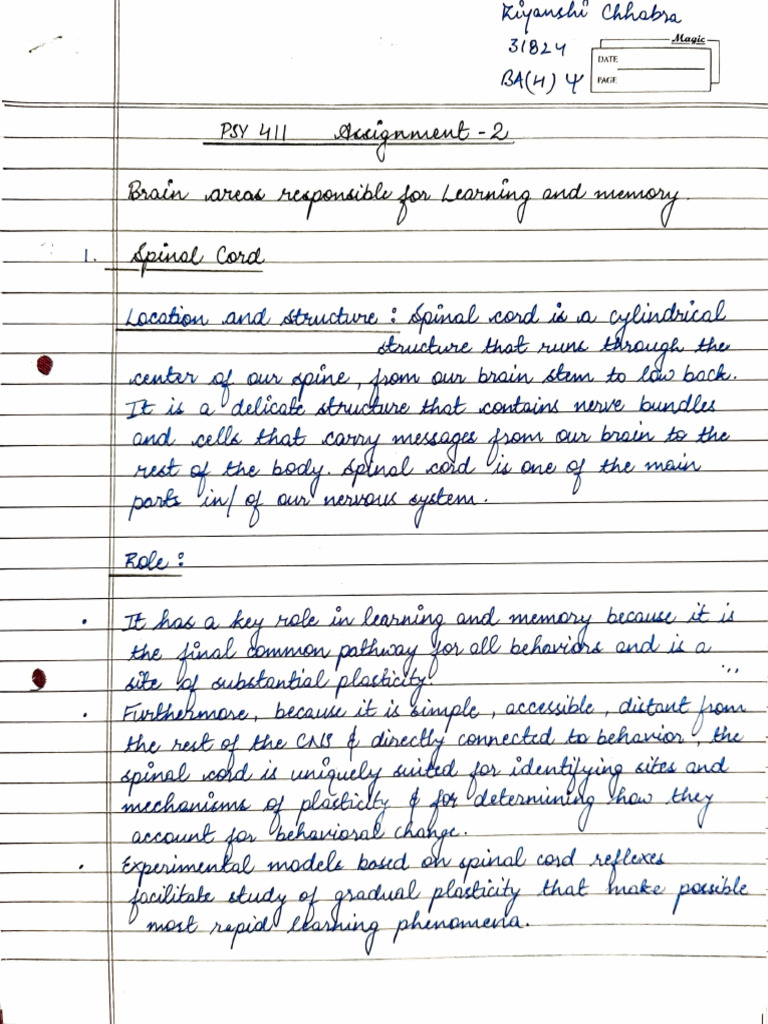 Riyanshi Chhabra
31824
Magic
DATE
BA(H) Ψ
PAGE
PSY 411 Assignment - 2
Brain areas responsible for Learning and memory.
1. Spinal Cord
Location and structure : Spinal cord is a cylindrical
structure that runs through the
center of our spine, from our brain stem to low back.
It is a delicate structure that contains nerve bundles
and cells that carry messages from our brain to the
rest of the body. Spinal cord is one of the main
parts in/ of our nervous system.
Role :
• It has a key role in learning and memory because it is
the final common pathway for all behaviors and is a
site of substantial plasticity.
• Furthermore, because it is simple, accessible, distant from
the rest of the CNS & directly connected to behavior, the
spinal cord is uniquely suited for identifying sites and
mechanisms of plasticity & for determining how they
account for behavioral change.
• Experimental models based on spinal cord reflexes
facilitate study of gradual plasticity that make possible
most rapid learning phenomena.